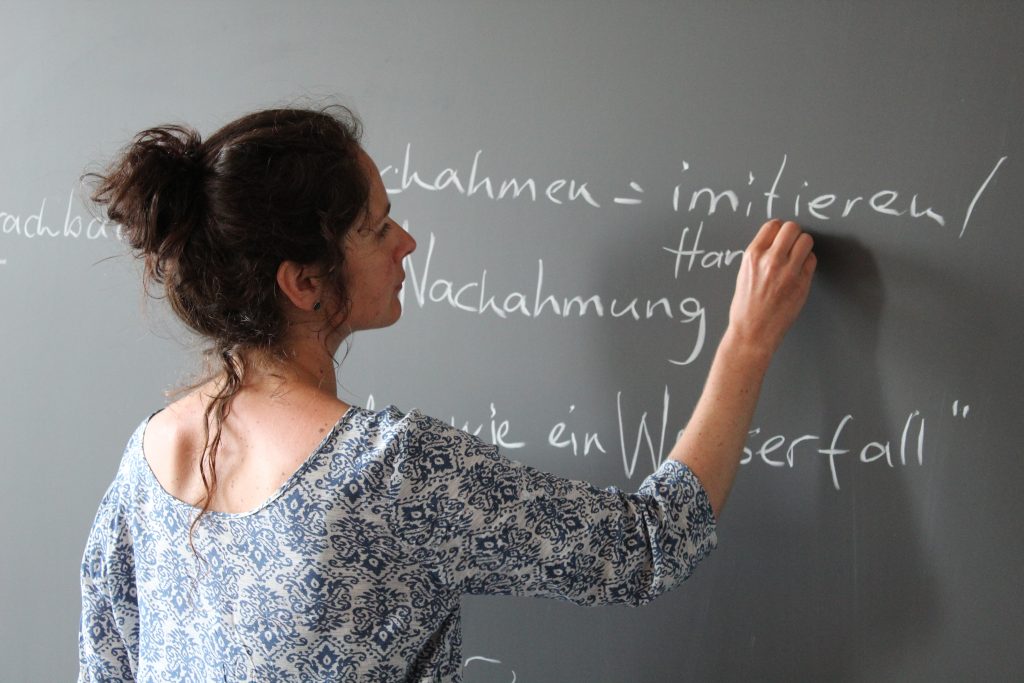 chahmen = imitieren /
Han
Nachahmung
wie ein Wasserfall"